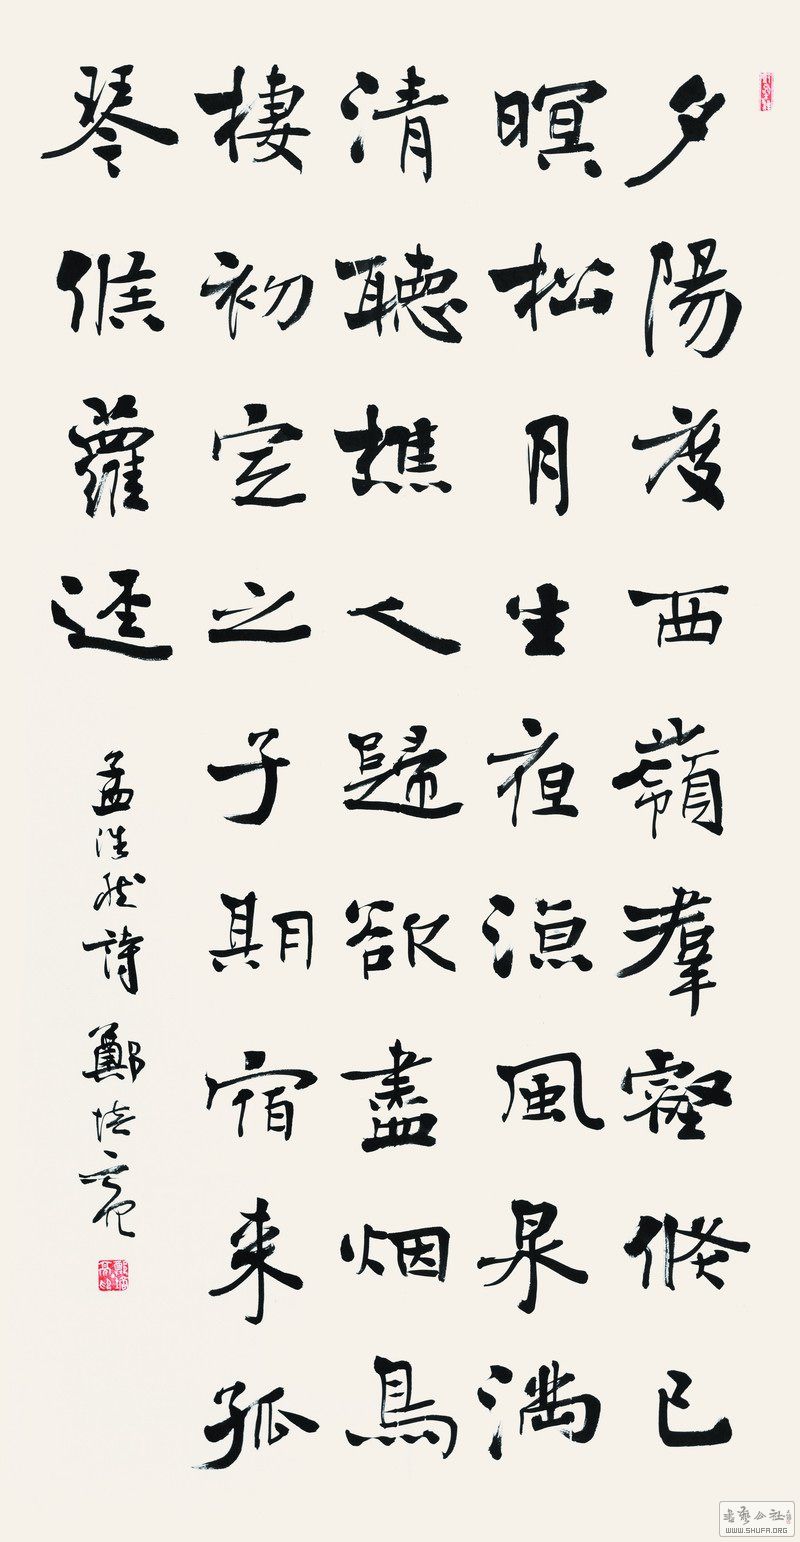 夕陽度西嶺羣壑倐已
暝松月生夜涼風泉滿
清聽樵人歸欲盡烟鳥
棲初定之子期宿来孤
琴候蘿逕
孟浩然詩 鄭培亮
書藝公社
WWW.SHUFA.ORG